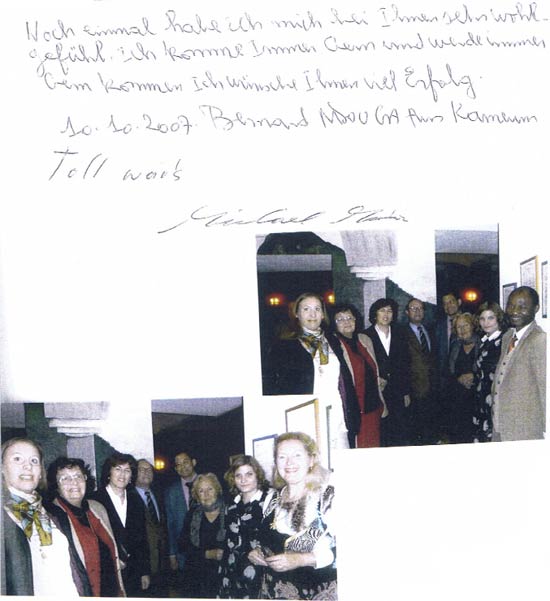 Noch einmal habe ich mich bei Ihnen sehr wohl-
gefühl. ich komme Immer Gern und werde immer
Gern kommen Ich wünsche Ihnen viel Erfolg.
10.10.2007. Bernard NDOUGA Aus Kamerun
Toll war's
Michael